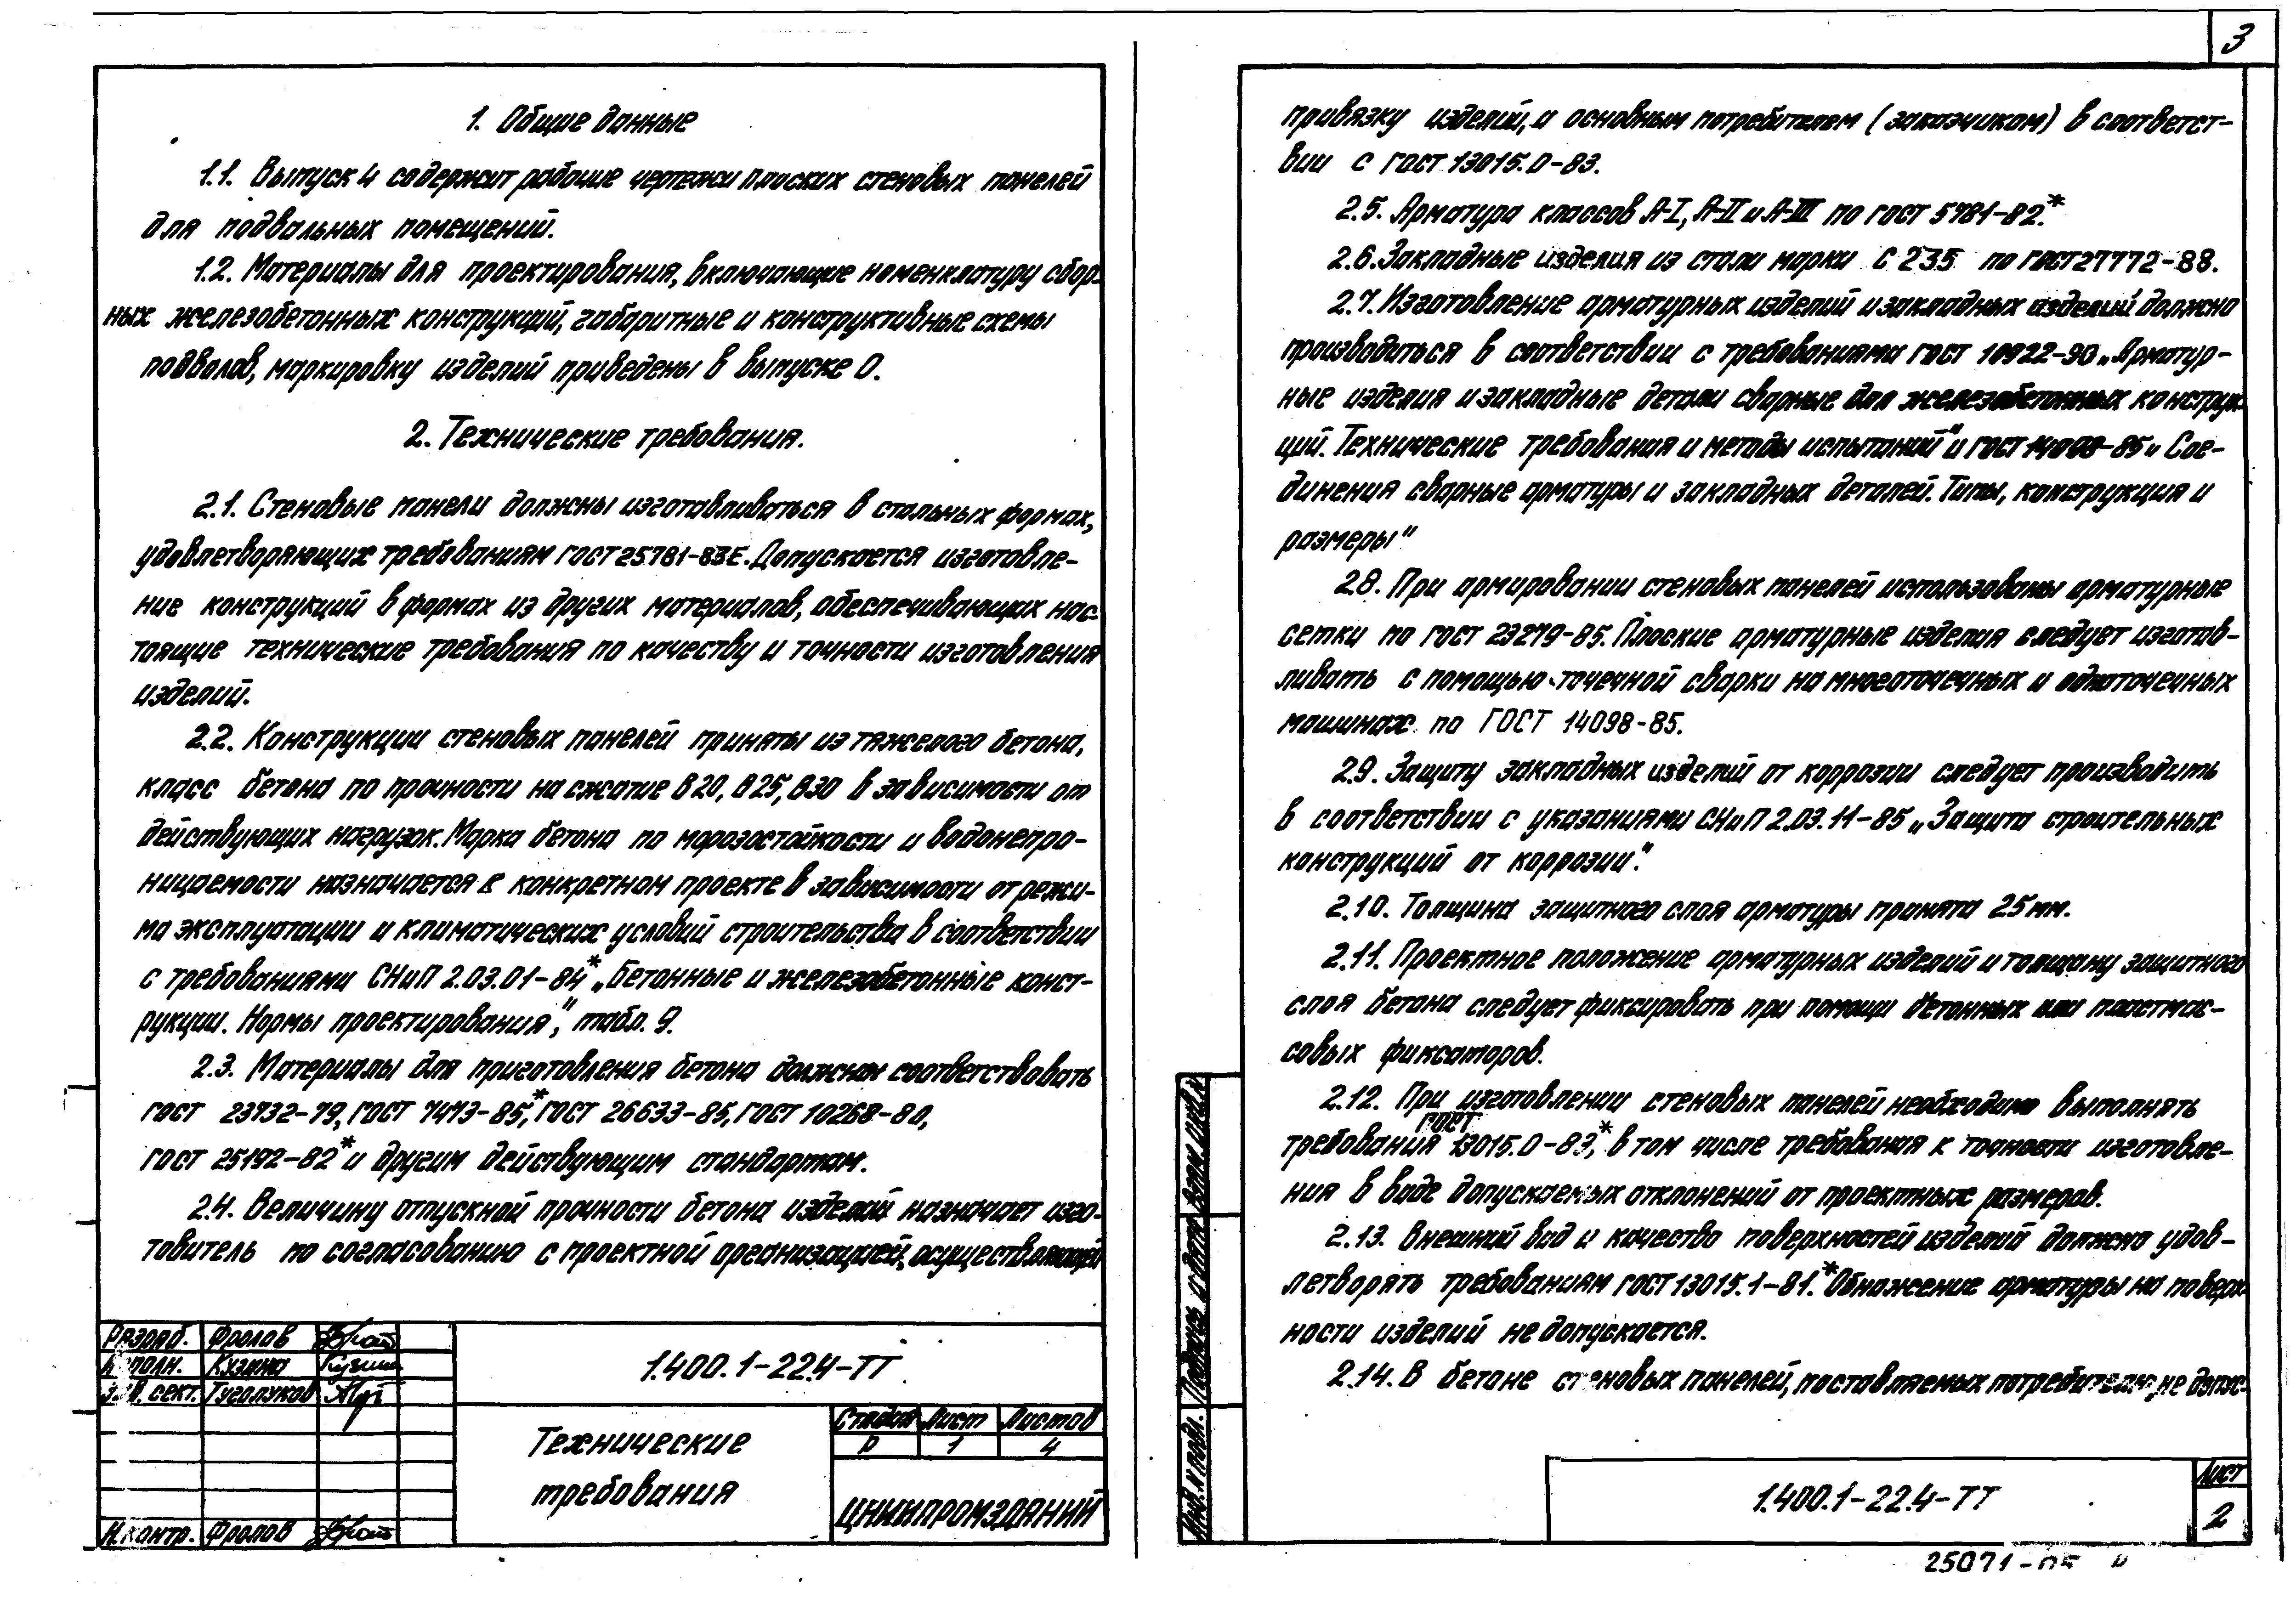 3
1. Общие данные
1.1. Выпуск 4 содержит рабочие чертежи плоских стеновых панелей
для подвальных помещений.
1.2. Материалы для проектирования, включающие номенклатуру сбор-
ных железобетонных конструкций, габаритные и конструктивные схемы
подвалов, маркировку изделий приведены в выпуске 0.
2. Технические требования.
2.1. Стеновые панели должны изготавливаться в стальных формах,
удовлетворяющих требованиям ГОСТ 25781-83Е. Допускается изготовле-
ние конструкций в формах из других материалов, обеспечивающих нас-
тоящие технические требования по качеству и точности изготовления
изделий.
2.2. Конструкции стеновых панелей приняты из тяжелого бетона,
класс бетона по прочности на сжатие В20, В25, В30 в зависимости от
действующих нагрузок. Марка бетона по морозостойкости и водонепро-
ницаемости назначается в конкретном проекте в зависимости от режи-
ма эксплуатации и климатических условий строительства в соответствии
с требованиями СНиП 2.03.01-84* „Бетонные и железобетонные конст-
рукции. Нормы проектирования", табл. 9.
2.3. Материалы для приготовления бетона должны соответствовать
ГОСТ 23732-79, ГОСТ 7473-85*, ГОСТ 26633-85, ГОСТ 10268-80,
ГОСТ 25192-82* и другим действующим стандартам.
2.4. Величину отпускной прочности бетона изделий назначает изго-
товитель по согласованию с проектной организацией, осуществляющей
Разраб. Фролов
Исполн. Кузина Кузина
Зав. сект. Туголуков
Н.контр. Фролов
1.400.1-22.4-ТТ
Технические
требования
Стадия Лист Листов
Р 1 4
ЦНИИПРОМЗДАНИЙ
привязку изделий, и основным потребителем (заказчиком) в соответст-
вии с ГОСТ 13015.0-83.
2.5. Арматура классов А-I, А-II и А-III по ГОСТ 5781-82.*
2.6. Закладные изделия из стали марки С 235 по ГОСТ 27772-88.
2.7. Изготовление арматурных изделий и закладных изделий должно
производиться в соответствии с требованиями ГОСТ 10922-90 „Арматур-
ные изделия и закладные детали сварные для железобетонных конструк-
ций. Технические требования и методы испытаний" и ГОСТ 14098-85 „Сое-
динения сварные арматуры и закладных деталей. Типы, конструкция и
размеры"
2.8. При армировании стеновых панелей использованы арматурные
сетки по ГОСТ 23279-85. Плоские арматурные изделия следует изготав-
ливать с помощью точечной сварки на многоточечных и одноточечных
машинах по ГОСТ 14098-85.
2.9. Защиту закладных изделий от коррозии следует производить
в соответствии с указаниями СНиП 2.03.11-85 „Защита строительных
конструкций от коррозии."
2.10. Толщина защитного слоя арматуры принята 25 мм.
2.11. Проектное положение арматурных изделий и толщину защитного
слоя бетона следует фиксировать при помощи бетонных или пластмас-
совых фиксаторов.
2.12. При изготовлении стеновых панелей необходимо выполнять
требования ГОСТ 13015.0-83*, в том числе требования к точности изготовле-
ния в виде допускаемых отклонений от проектных размеров.
2.13. Внешний вид и качество поверхностей изделий должно удов-
летворять требованиям ГОСТ 13015.1-81.* Обнажение арматуры на поверх-
ности изделий не допускается.
2.14. В бетоне стеновых панелей, поставляемых потребителю, не допус-
Инв. N подл. Подпись и дата Взам. инв. N
1.400.1-22.4-ТТ
Лист
2
25071-05 4